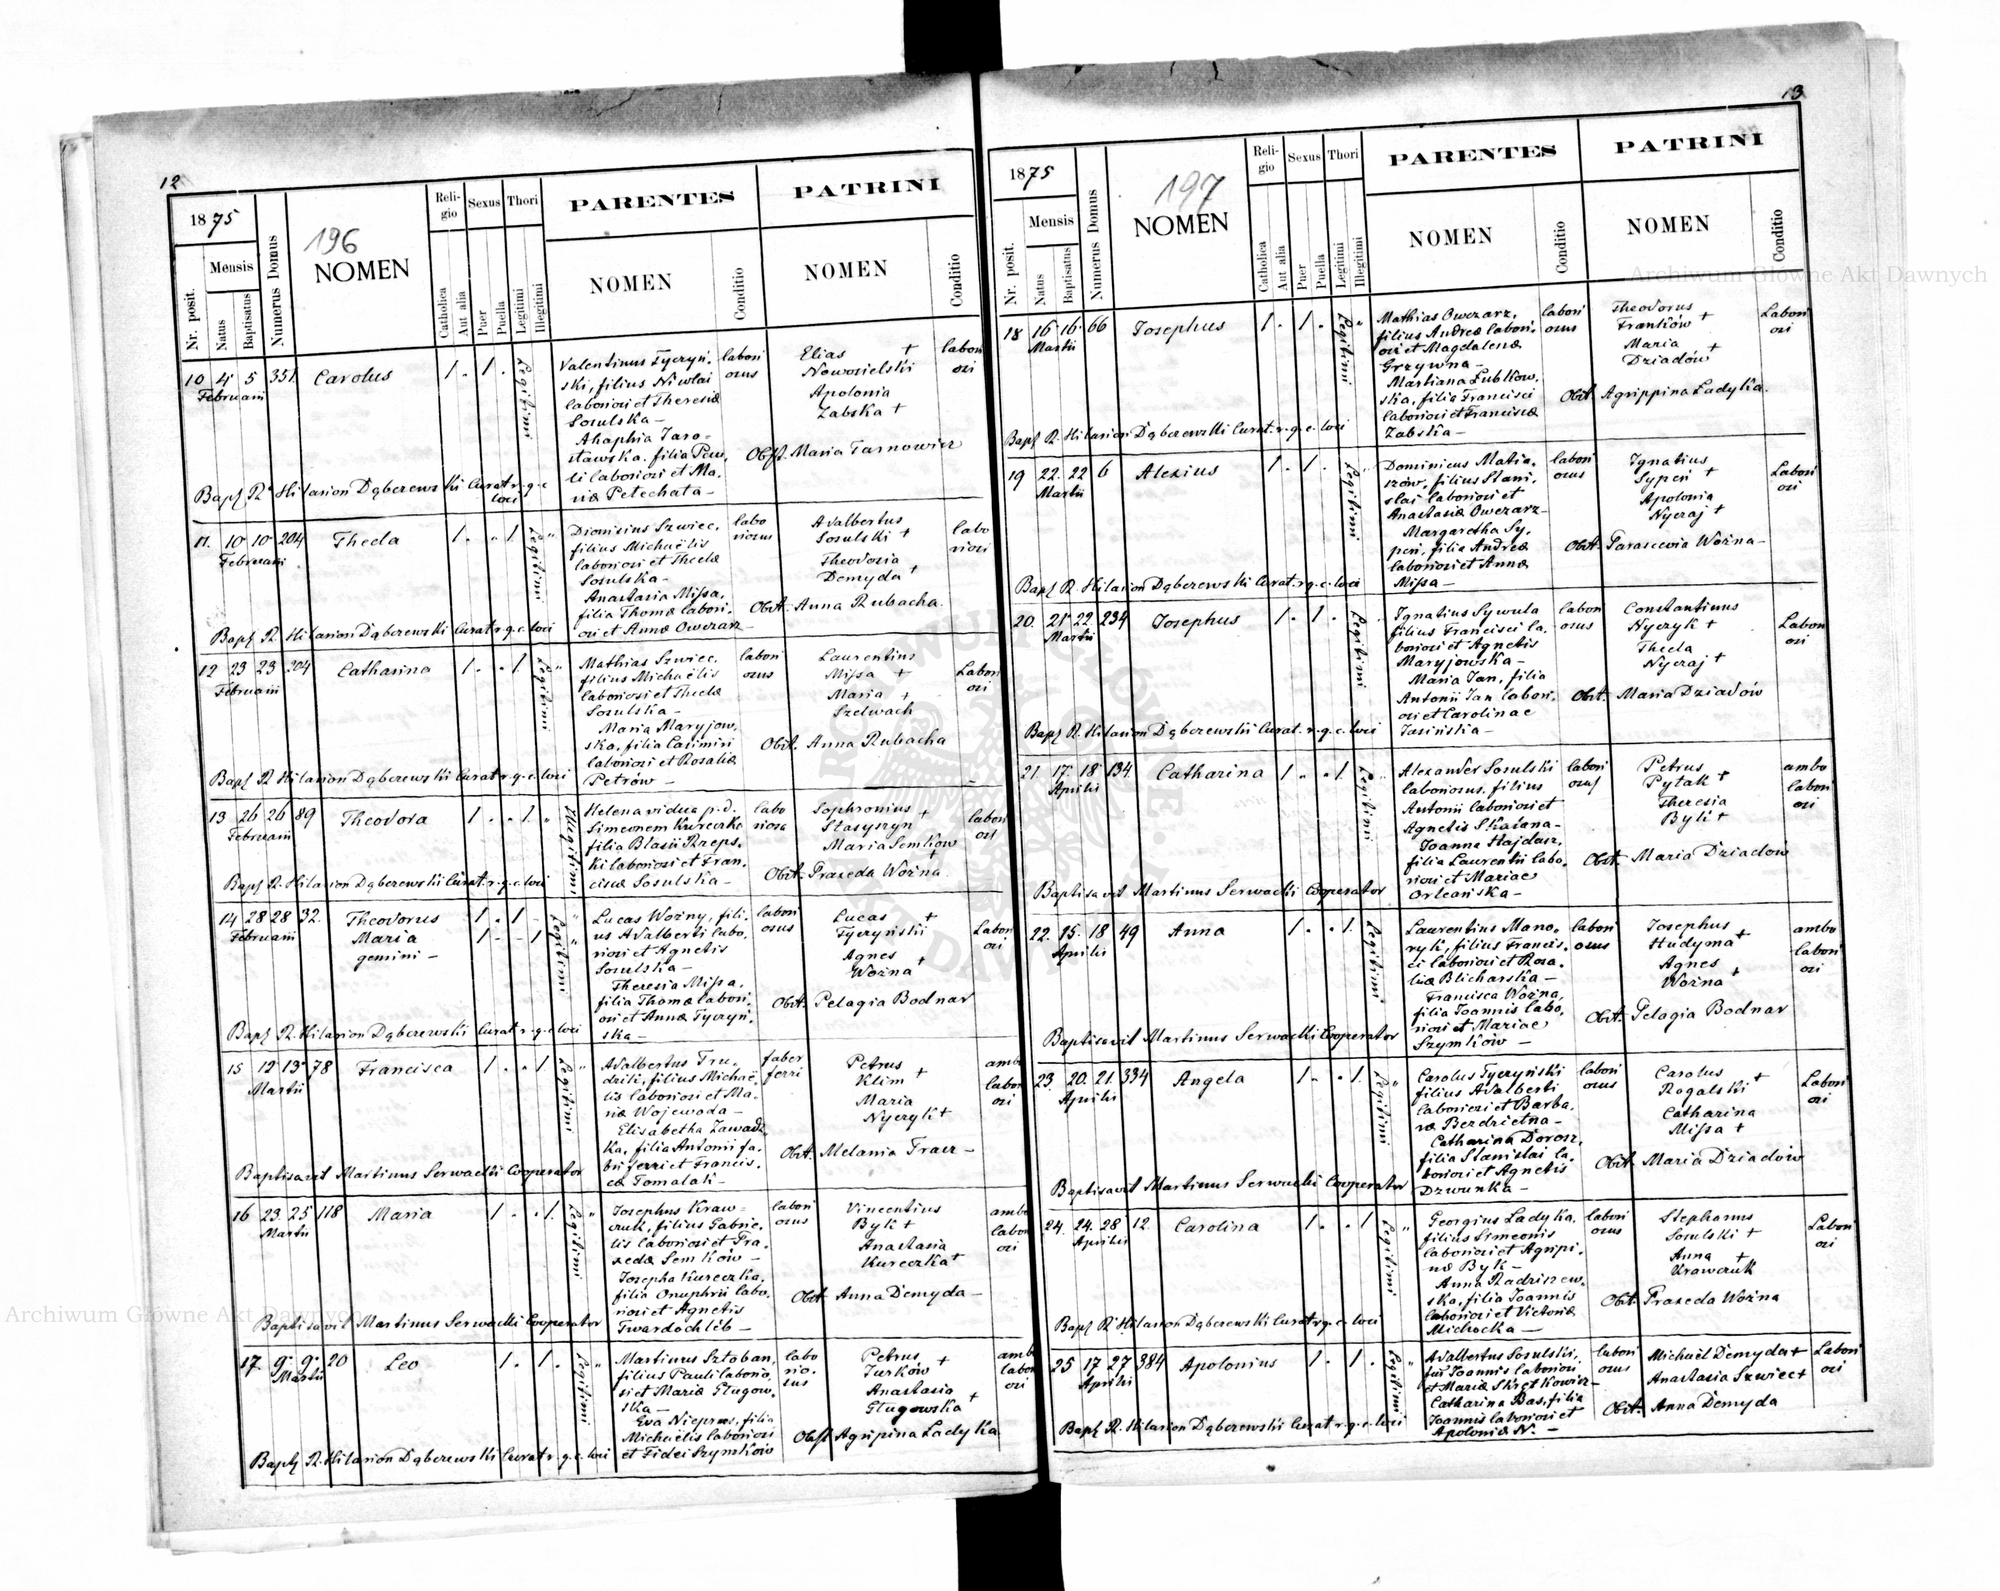 12
1875
196
Nr. posit.
Mensis
Natus
Baptisatus
Numerus Domus
NOMEN
Religio
Catholica
Aut alia
Sexus
Puer
Puella
Thori
Legitimi
Illegitimi
PARENTES
NOMEN
Conditio
PATRINI
NOMEN
Conditio
10 4 5 351 Carolus 1 . 1 . Legitimi
Februarii
Valentinus Tyczyń-
ski, filius Nicolai
laboriosi et Theresiæ
Sosulska —
Ahaphia Jaro-
sławska, filia Paw-
li laboriosi et Ma-
riæ Petechata —
labori
osus
Elias +
Nowosielski
Apolonia
Zabska +
labori
osi
Obst. Maria Tarnowicz
Bapt. R. Hilarion Dąbczewski Curat. r. g. c.
loci
11. 10 10 204 Theda 1 . . 1 Legitimi "
Februarii
Dionisius Szwiec,
filius Michaëlis
laboriosi et Thedæ
Sosulska —
Anastasia Missa,
filia Thomæ labori-
osi et Annæ Owczarz —
labo
riosus
Adalbertus
Sosulski +
Theodosia
Demyda +
labo
riosi
Obst. Anna Rubacha.
Bapt. R. Hilarion Dąbczewski Curat. r. g. c. loci
12 23 23 204 Catharina 1 . . 1 Legitimi "
Februarii
Mathias Szwiec,
filius Michaëlis
laboriosi et Thedæ
Sosulska —
Maria Maryjow-
ska, filia Casimiri
laboriosi et Rosaliæ
Petrów —
labori
osus
Laurentius
Missa +
Maria +
Szelwach
Labori
osi
Obst. Anna Rubacha
Bapt. R. Hilarion Dąbczewski Curat. r. g. c. loci
13 26 26 89 Theodora 1 . . 1 " Illegitimi
Februarii
Helena vidua p. d.
Simeonem Kureczko
filia Blasii Rzeps-
ki laboriosi et Fran-
ciscæ Sosulska —
labo
riosa
Sophronius +
Stasyszyn
Maria Semków
+
labori
osi
Obst. Praxeda Woźna
Bapt. R. Hilarion Dąbczewski Curat. r. g. c. loci
14 28 28 32. Theodorus 1 . 1 - Legitimi "
Februarii Maria 1 - - 1 "
gemini —
Lucas Woźny, fili-
us Adalberti labo-
riosi et Agnetis
Sosulska —
Theresia Missa,
filia Thomæ labori-
osi et Annæ Tyczyń-
ska —
labori
osus
Lucas +
Tyczyński
Agnes +
Woźna
Labori
osi
Obst. Pelagia Bodnar
Bapt. R. Hilarion Dąbczewski Curat. r. g. c. loci
15 12 13 78 Francisca 1 . . 1 Legitimi "
Martii
Adalbertus Fru-
driti, filius Michaë-
lis laboriosi et Ma-
riæ Wojewoda —
Elisabetha Zawadz-
ka, filia Antonii fa-
bri ferri et Francis-
cæ Tomalak —
faber
ferri
Petrus
Klim +
Maria
Nyczyk +
ambo
labori
osi
Obst. Melania Tracz —
Baptisavit Martinus Serwacki Cooperator
16 23. 25 118 Maria 1 . . 1. Legitimi "
Martii
Josephus Kraw-
czuk, filius Gabrie-
lis laboriosi et Pra-
xedæ Semków —
Josepha Kureczka,
filia Onuphrii labo-
riosi et Agnetis
Twardochleb —
labori
osus
Vincentius
Byk +
Anastasia
Kureczka +
ambo
labori
osi
Obst. Anna Demyda —
Baptisavit Martinus Serwacki Cooperator
17 9. 9. 20 Leo 1 . 1 . Legitimi "
Martii
Martinus Sztoban,
filius Pauli laborio-
si et Mariæ Gługow-
ska —
Eva Niepraws, filia
Michaëlis laboriosi
et Fidei Szymków
labo
rio-
sus
Petrus +
Turków
Anastasia +
Gługowska
ambo
labori
osi
Obst. Agripina Ladyka
Bapt. R. Hilarion Dąbczewski Curat. r. g. c. loci
13
1875
197
Nr. posit.
Mensis
Natus
Baptisatus
Numerus Domus
NOMEN
Religio
Catholica
Aut alia
Sexus
Puer
Puella
Thori
Legitimi
Illegitimi
PARENTES
NOMEN
Conditio
PATRINI
NOMEN
Conditio
18 16 16 66 Josephus 1 . 1 . Legitimi "
Martii
Mathias Owczarz,
filius Andreæ labori-
osi et Magdalenæ
Grzywna —
Martiana Lubkow-
ska, filia Francisci
laboriosi et Franciscæ
Zabska —
labori
osus
Theodorus
Franków +
Maria +
Dziadów
Labori
osi
Obst. Agrippina Ladyka.
Bapt. R. Hilarion Dąbczewski Curat. r. g. c. loci
19 22. 22 6 Alexius 1 . 1 . Legitimi "
Martii
Dominicus Matia-
szów, filius Stani-
slai laboriosi et
Anastasiæ Owczarz —
Margaretha Sy-
peń, filia Andreæ
laboriosi et Annæ
Missa —
labori
osus
Ignatius
Sypeń +
Apolonia
Nyczaj +
Labori
osi
Obst. Parascevia Woźna —
Bapt. R. Hilarion Dąbczewski Curat. r. g. c. loci
20. 21 22. 234 Josephus 1 . 1 . Legitimi
Martii
Ignatius Sywula
filius Francisci la-
boriosi et Agnetis
Maryjowska —
Maria Jan, filia
Antonii Jan labori-
osi et Carolinae
Jasińska —
labori
osus
Constantinus
Nyczyk +
Theda
Nyczaj +
Labori
osi
Obst. Maria Dziadów
Bapt. R. Hilarion Dąbczewski Curat. r. g. c. loci
21. 17. 18 134 Catharina 1 . . 1. Legitimi "
Aprilis
Alexander Sosulski
laboriosus, filius
Antonii laboriosi et
Agnetis Skażana —
Joanna Hajdasz,
filia Laurentii labo-
riosi et Mariae
Orleańska —
labori
osus
Petrus
Pytak +
Theresia
Byk +
ambo
labori
osi
Obst. Maria Dziadów
Baptisavit Martinus Serwacki Cooperator
22. 15. 18 49 Anna 1 . . 1. Legitimi
Aprilis
Laurentius Mano-
ryk, filius Francis-
ci laboriosi et Rosa-
liæ Blicharska —
Francisca Woźna,
filia Joannis labo-
riosi et Mariae
Szymków —
labori
osus
Josephus
Hudyma +
Agnes
Woźna +
ambo
labori
osi
Obst. Pelagia Bodnar
Baptisavit Martinus Serwacki Cooperator
23. 20. 21. 334 Angela 1 . . 1. Legitimi "
Aprilis
Carolus Tyczyński
filius Adalberti
laboriosi et Barba-
ræ Bezdzietna —
Catharina Dorosz,
filia Stanislai la-
boriosi et Agnetis
Dzwunka —
labori
osus
Carolus
Rogalski +
Catharina
Missa +
Labori
osi
Obst. Maria Dziadów
Baptisavit Martinus Serwacki Cooperator
24. 24. 28 12. Carolina 1 . . 1 Legitimi "
Aprilis
Georgius Ladyka,
filius Simeonis
laboriosi et Agripi-
næ Byk —
Anna Radziszew-
ska, filia Joannis
laboriosi et Victoriæ
Michocka —
labori
osus
Stephanus
Sosulski +
Anna +
Krawczuk
Labori
osi
Obst. Praxeda Woźna
Bapt. R. Hilarion Dąbczewski Curat. r. g. c. loci
25 17 27 384 Apolonius 1 . 1 . Legitimi "
Aprilis
Adalbertus Sosulski,
fil. Joannis laboriosi
et Mariæ Skrętkowicz —
Catharina Bas, filia
Joannis laboriosi et
Apoloniæ N. —
labori
osus
Michaël Demyda +
Anastasia Szwiec +
Labori
osi
Obst. Anna Demyda
Bapt. R. Hilarion Dąbczewski Curat. r. g. c. loci
Archiwum Główne Akt Dawnych
Archiwum Główne Akt Dawnych
ARCHIWUM GŁÓWNE AKT DAWNYCH